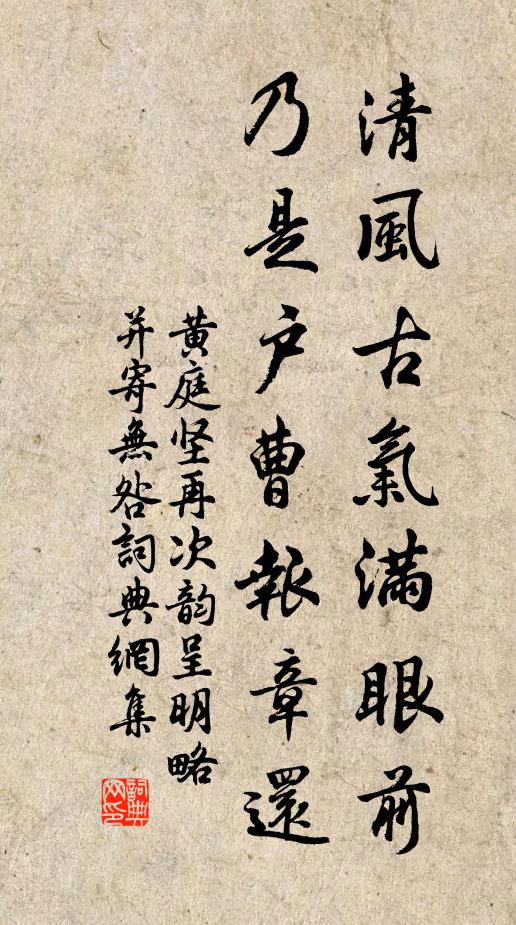 清風古氣滿眼前
乃是户曹報章還
黄庭坚再次韵呈明略
并寄無咎詞典網集
詞典网印